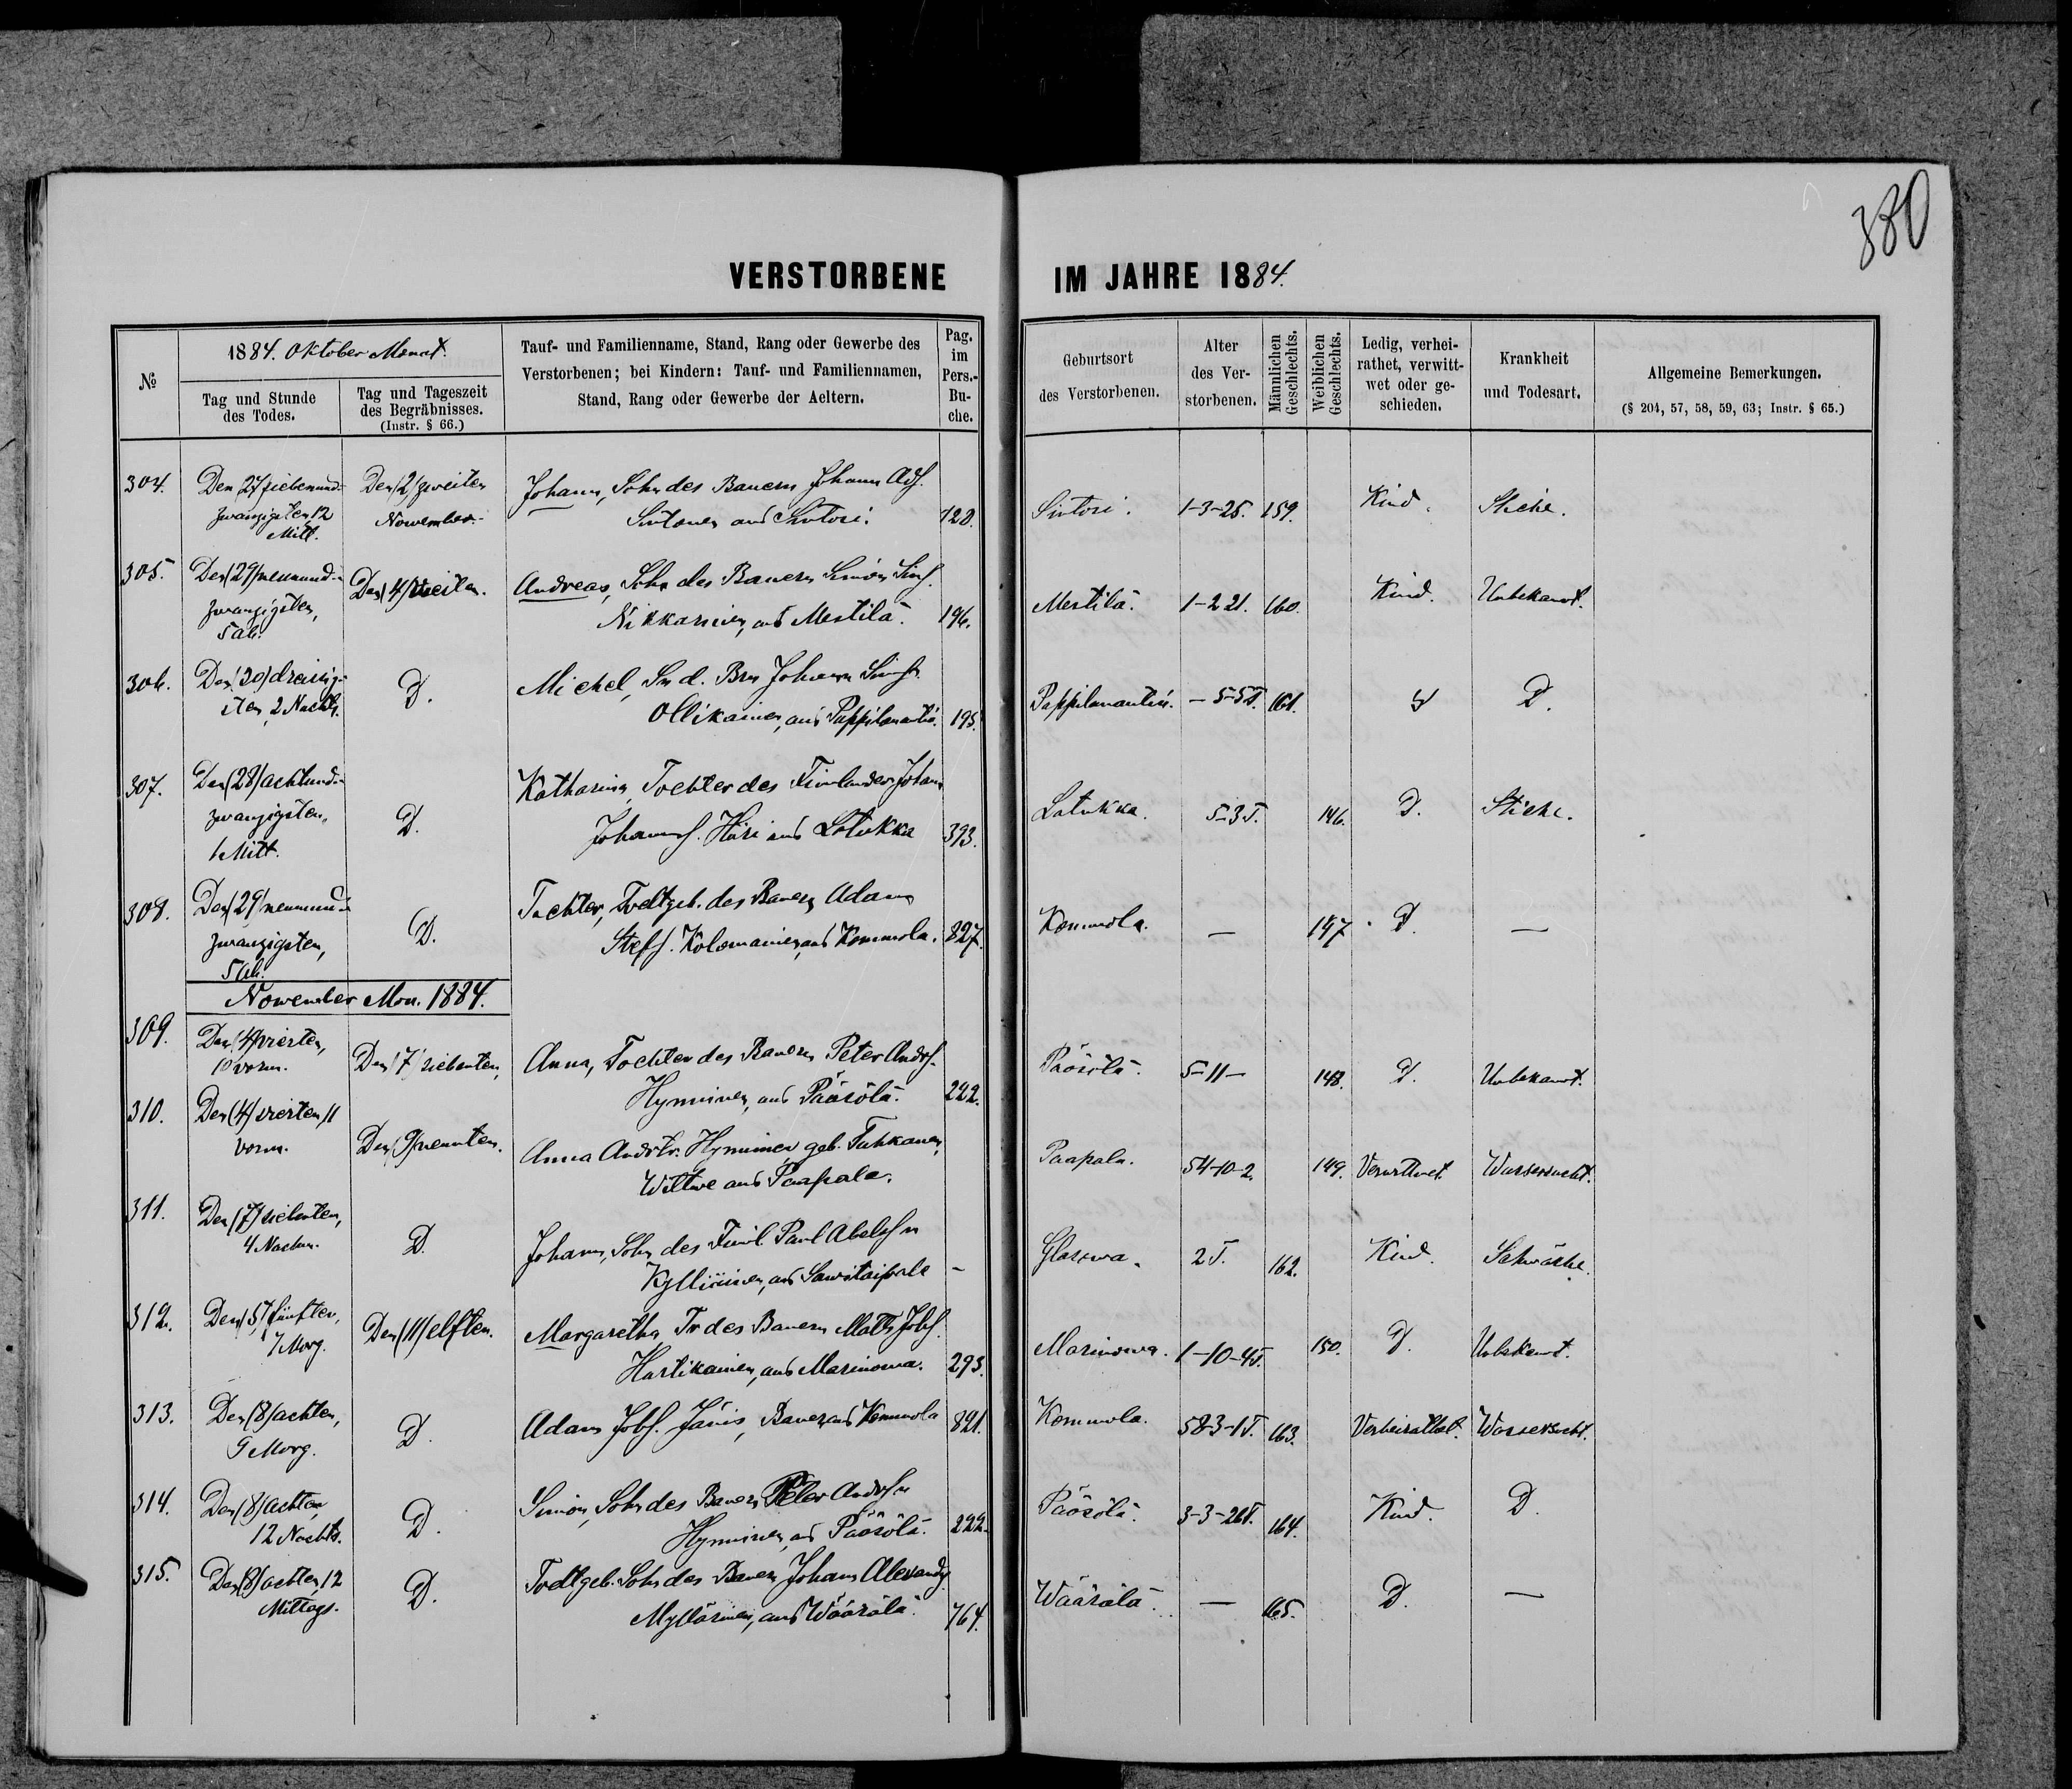 380
VERSTORBENE IM JAHRE 1884.
№
1884. Oktober Monat.
Tag und Stunde
des Todes.
Tag und Tageszeit
des Begräbnisses.
(Instr. § 66.)
Tauf- und Familienname, Stand, Rang oder Gewerbe des
Verstorbenen; bei Kindern: Tauf- und Familiennamen,
Stand, Rang oder Gewerbe der Aeltern.
Pag.
im
Pers.-
Bu-
che.
Geburtsort
des Verstorbenen.
Alter
des Ver-
storbenen.
Männlichen
Geschlechts.
Weiblichen
Geschlechts.
Ledig, verhei-
rathet, verwitt-
wet oder ge-
schieden.
Krankheit
und Todesart.
Allgemeine Bemerkungen.
(§ 204, 57, 58, 59, 63; Instr. § 65.)
304. Den 27 siebenund- Den (2) zweiten Johann, Sohn des Bauern Johann
zwanzigsten 12 November. Sintonen aus Sintori. 728. Sintori. 1-3-25. 159. Kind. Stiche.
Mitt.
305. Den (29) neunund- Den (4) Andreas, Sohn des Bauern Simon
zwanzigsten, Nikkanien, aus Mestilä. 196. Mestilä. 1-2 21. 160. Kind. Unbekannt.
5 ab.
306. Den (30) dreisig- D. Michel, Sn d. Brn Johann
sten, 2 Nachts. Ollikainen, aus 195. — 5-5 T. 161. D.
307. Den (28) achtund- Katharina, Tochter des Finnländer Johann
zwanzigsten, D. Johanns. aus Lotukka 393. Latukka. 5-3 T. 146. D. Stiche.
1 Mitt.
308. Den (29) neunund- Tochter, Todtgeb. des Bauern Adam
zwanzigsten, D. Stefs. Kolomainen, aus Kommola. 827. Kommola. — 147. D. —
5 Ab.
November Mon. 1884.
309. Den (4) vierten,
10 vorm. Den (7) siebenten, Anna, Tochter des Bauern Peter Andrs.
Hynninen, aus Päösölä. 222. Päösölä. 5-11- 148. D. Unbekannt.
310. Den (4) vierten, 11
vorm. Den (9) neunten. Anna Andrstr. Hynninen geb. Tuhkanen,
Wittwe aus Paapala. Paapala. 54-10-2. 149. Verwittwet. Wassersucht.
311. Den (7) siebenten,
4 Nachm. D. Johann, Sohn des Finnl. Paul Abelsn
Kylliäinen, aus Sawitaipale – Glasowa. 2 T. 162. Kind. Schwäche.
312. Den (5) fünften,
7 Morg. Den (11) elften. Margaretha, Tr des Bauern Matts Johs.
Hartikainen, aus Marinowa. 293. Marinowa. 1-10-4 T. 150. D. Unbekannt.
313. Den (8) achten,
9 Morg. D. Adam Johs. Jänis, Bauer, aus Kommola 821. Kommola. 58-3-1 T. 163. Verheirathet. Wassersucht.
314. Den (8) achten,
12 Nachts. D. Simon, Sohn des Bauern Peter Andrsn
Hynninen, aus Päösölä. 222. Päösölä. 3-3-26 T. 164. Kind. D.
315. Den (8) achten, 12
Mittags. D. Todtgeb. Sohn des Bauern Johann Alexandrs.
Myllärinen, aus Wäärälä. 764. Wäärälä. — 165. D. —